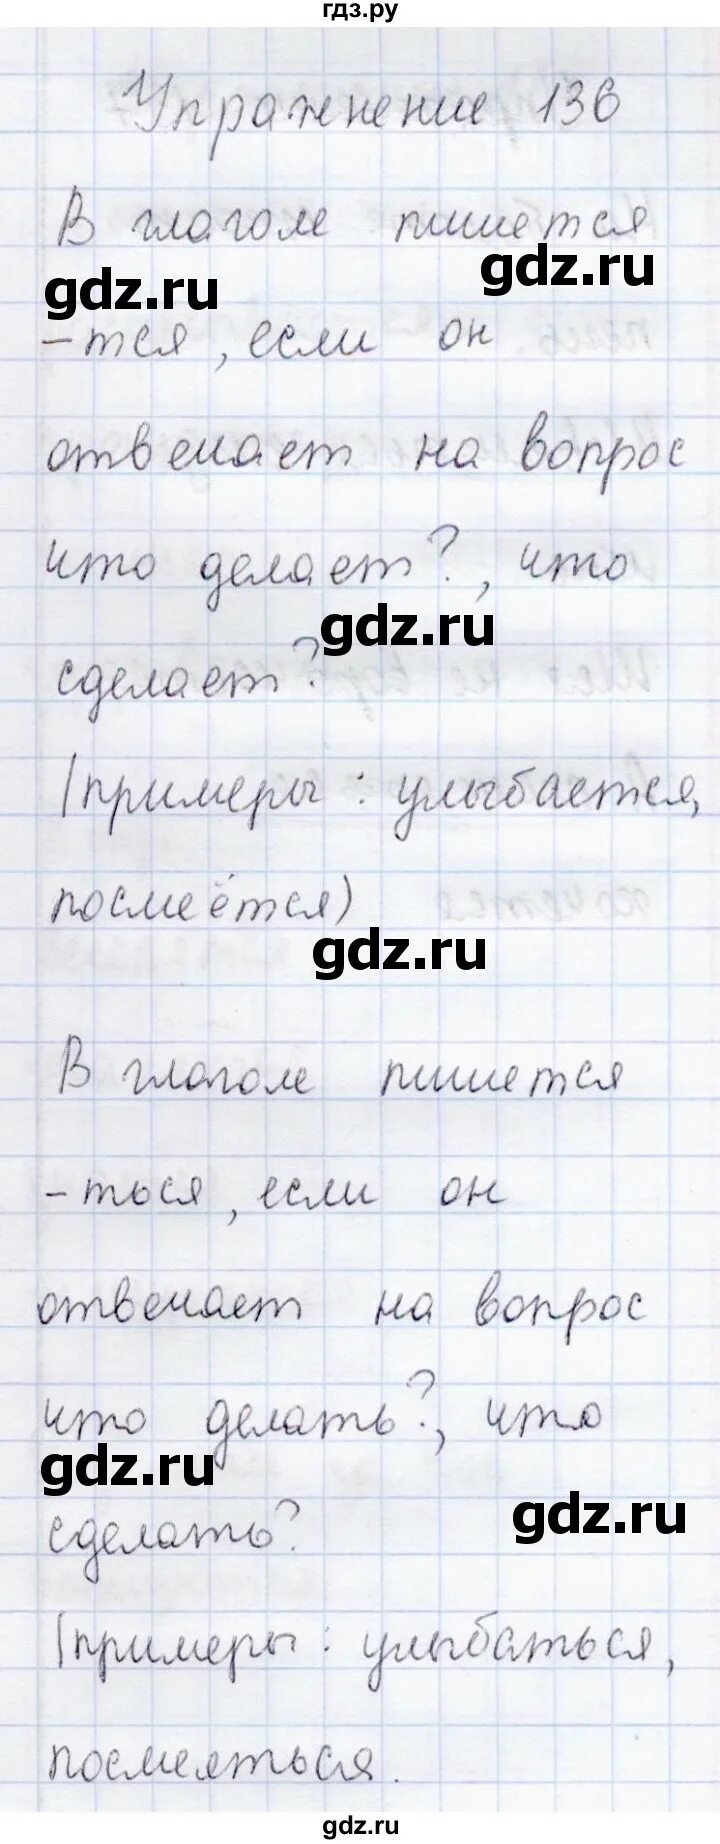 гдз.ру
Упражнение 136
В глаголе пишется
gdz.ru gdz.ru
-тся, если он
отвечает на вопрос
что делает?, что
gdz.ru
сделает?
(примеры: улыбается,
посмеётся)
gdz.ru
В глаголе пишется
-ться, если он
отвечает на вопрос
что делать?, что
gdz.ru gdz.ru
сделать?
(примеры: улыбаться,
посмеяться.
gdz.ru